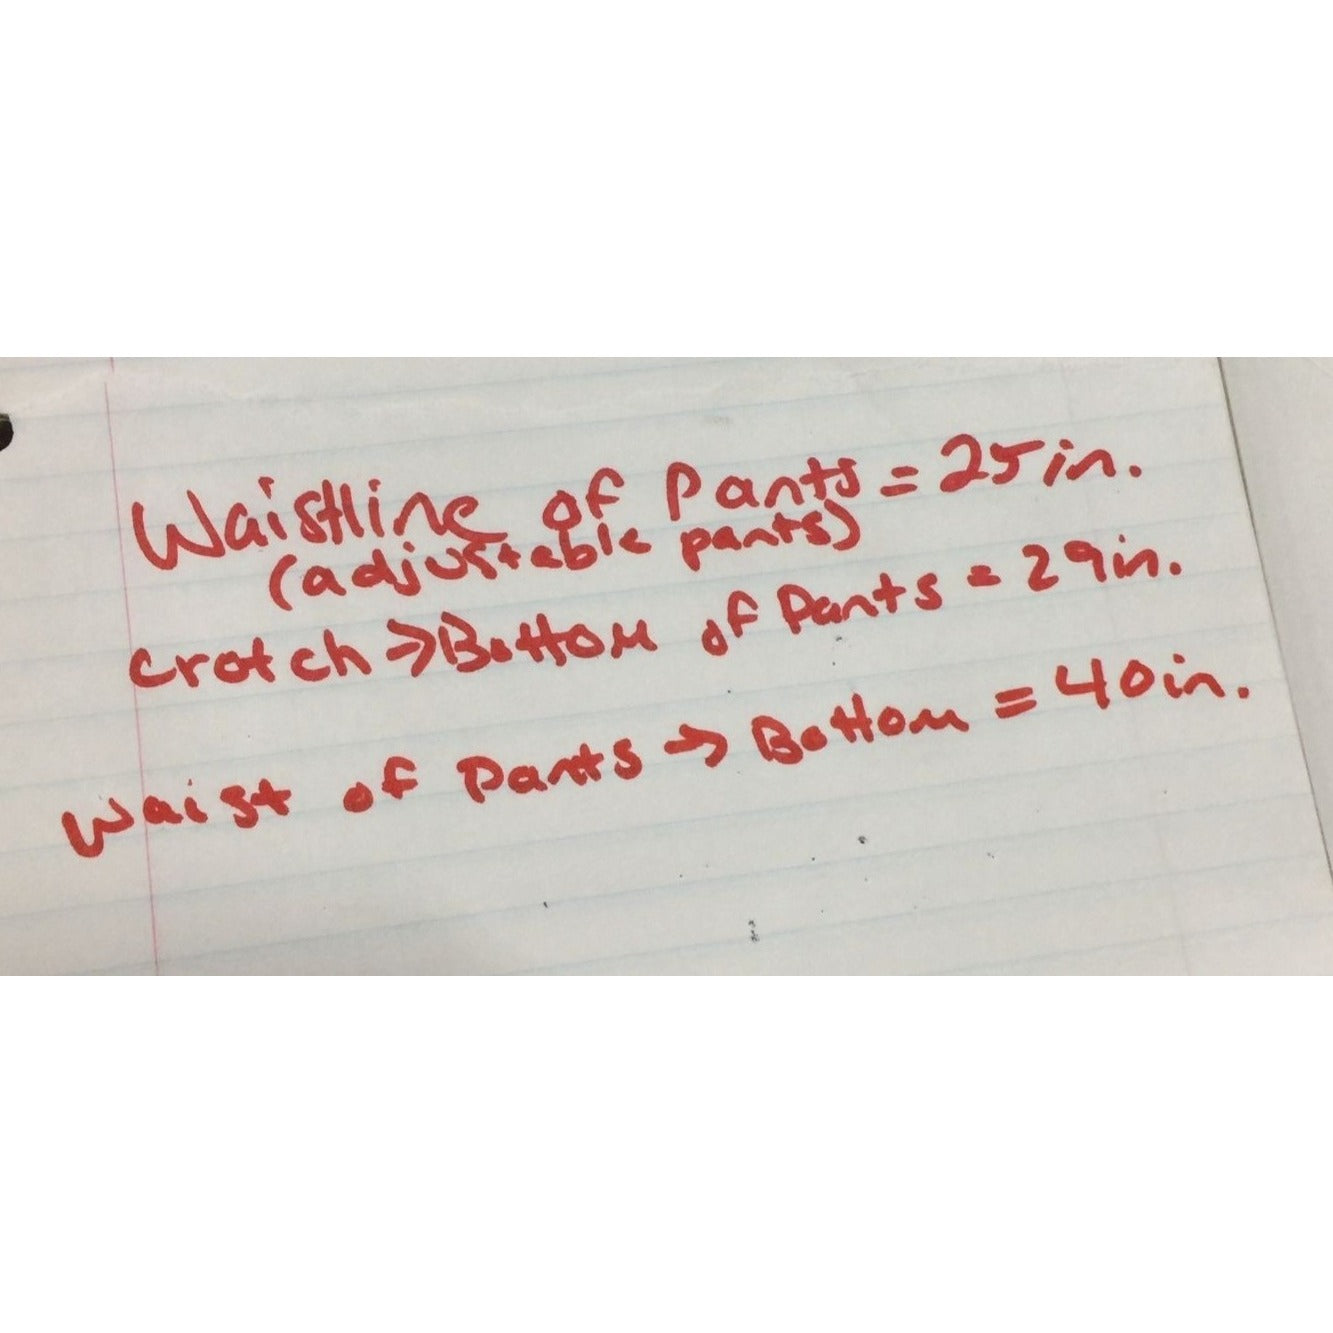 Waistline of Pants = 25in.
(adjustable pants)
crotch → Bottom of Pants = 29in.
Waist of Pants → Bottom = 40in.